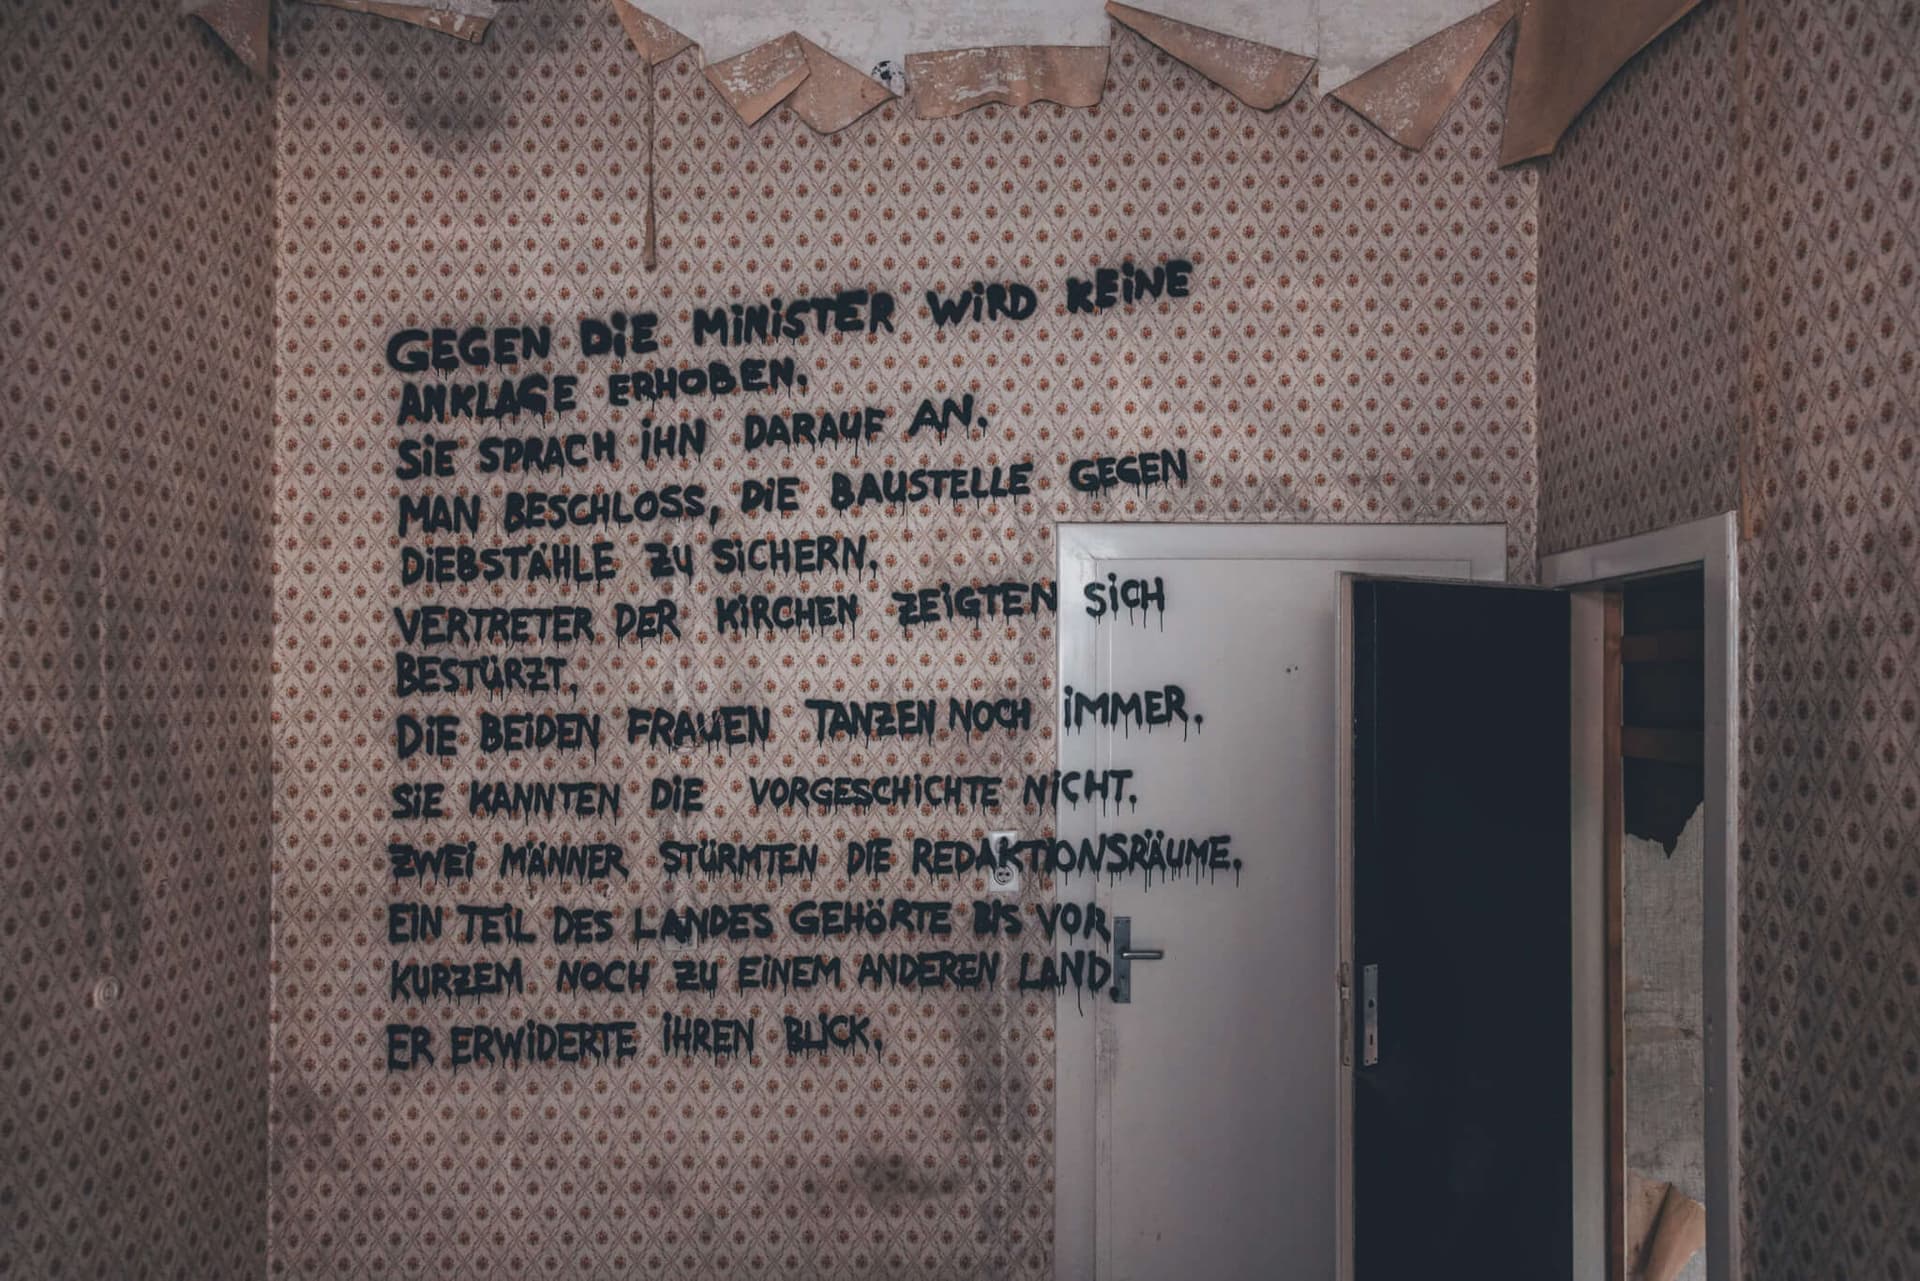 GEGEN DIE MINISTER WIRD KEINE
ANKLAGE ERHOBEN.
SIE SPRACH IHN DARAUF AN.
MAN BESCHLOSS, DIE BAUSTELLE GEGEN
DIEBSTÄHLE ZU SICHERN.
VERTRETER DER KIRCHEN ZEIGTEN SICH
BESTÜRZT.
DIE BEIDEN FRAUEN TANZEN NOCH IMMER.
SIE KANNTEN DIE VORGESCHICHTE NICHT.
ZWEI MÄNNER STÜRMTEN DIE REDAKTIONSRÄUME.
EIN TEIL DES LANDES GEHÖRTE BIS VOR
KURZEM NOCH ZU EINEM ANDEREN LAND.
ER ERWIDERTE IHREN BLICK.